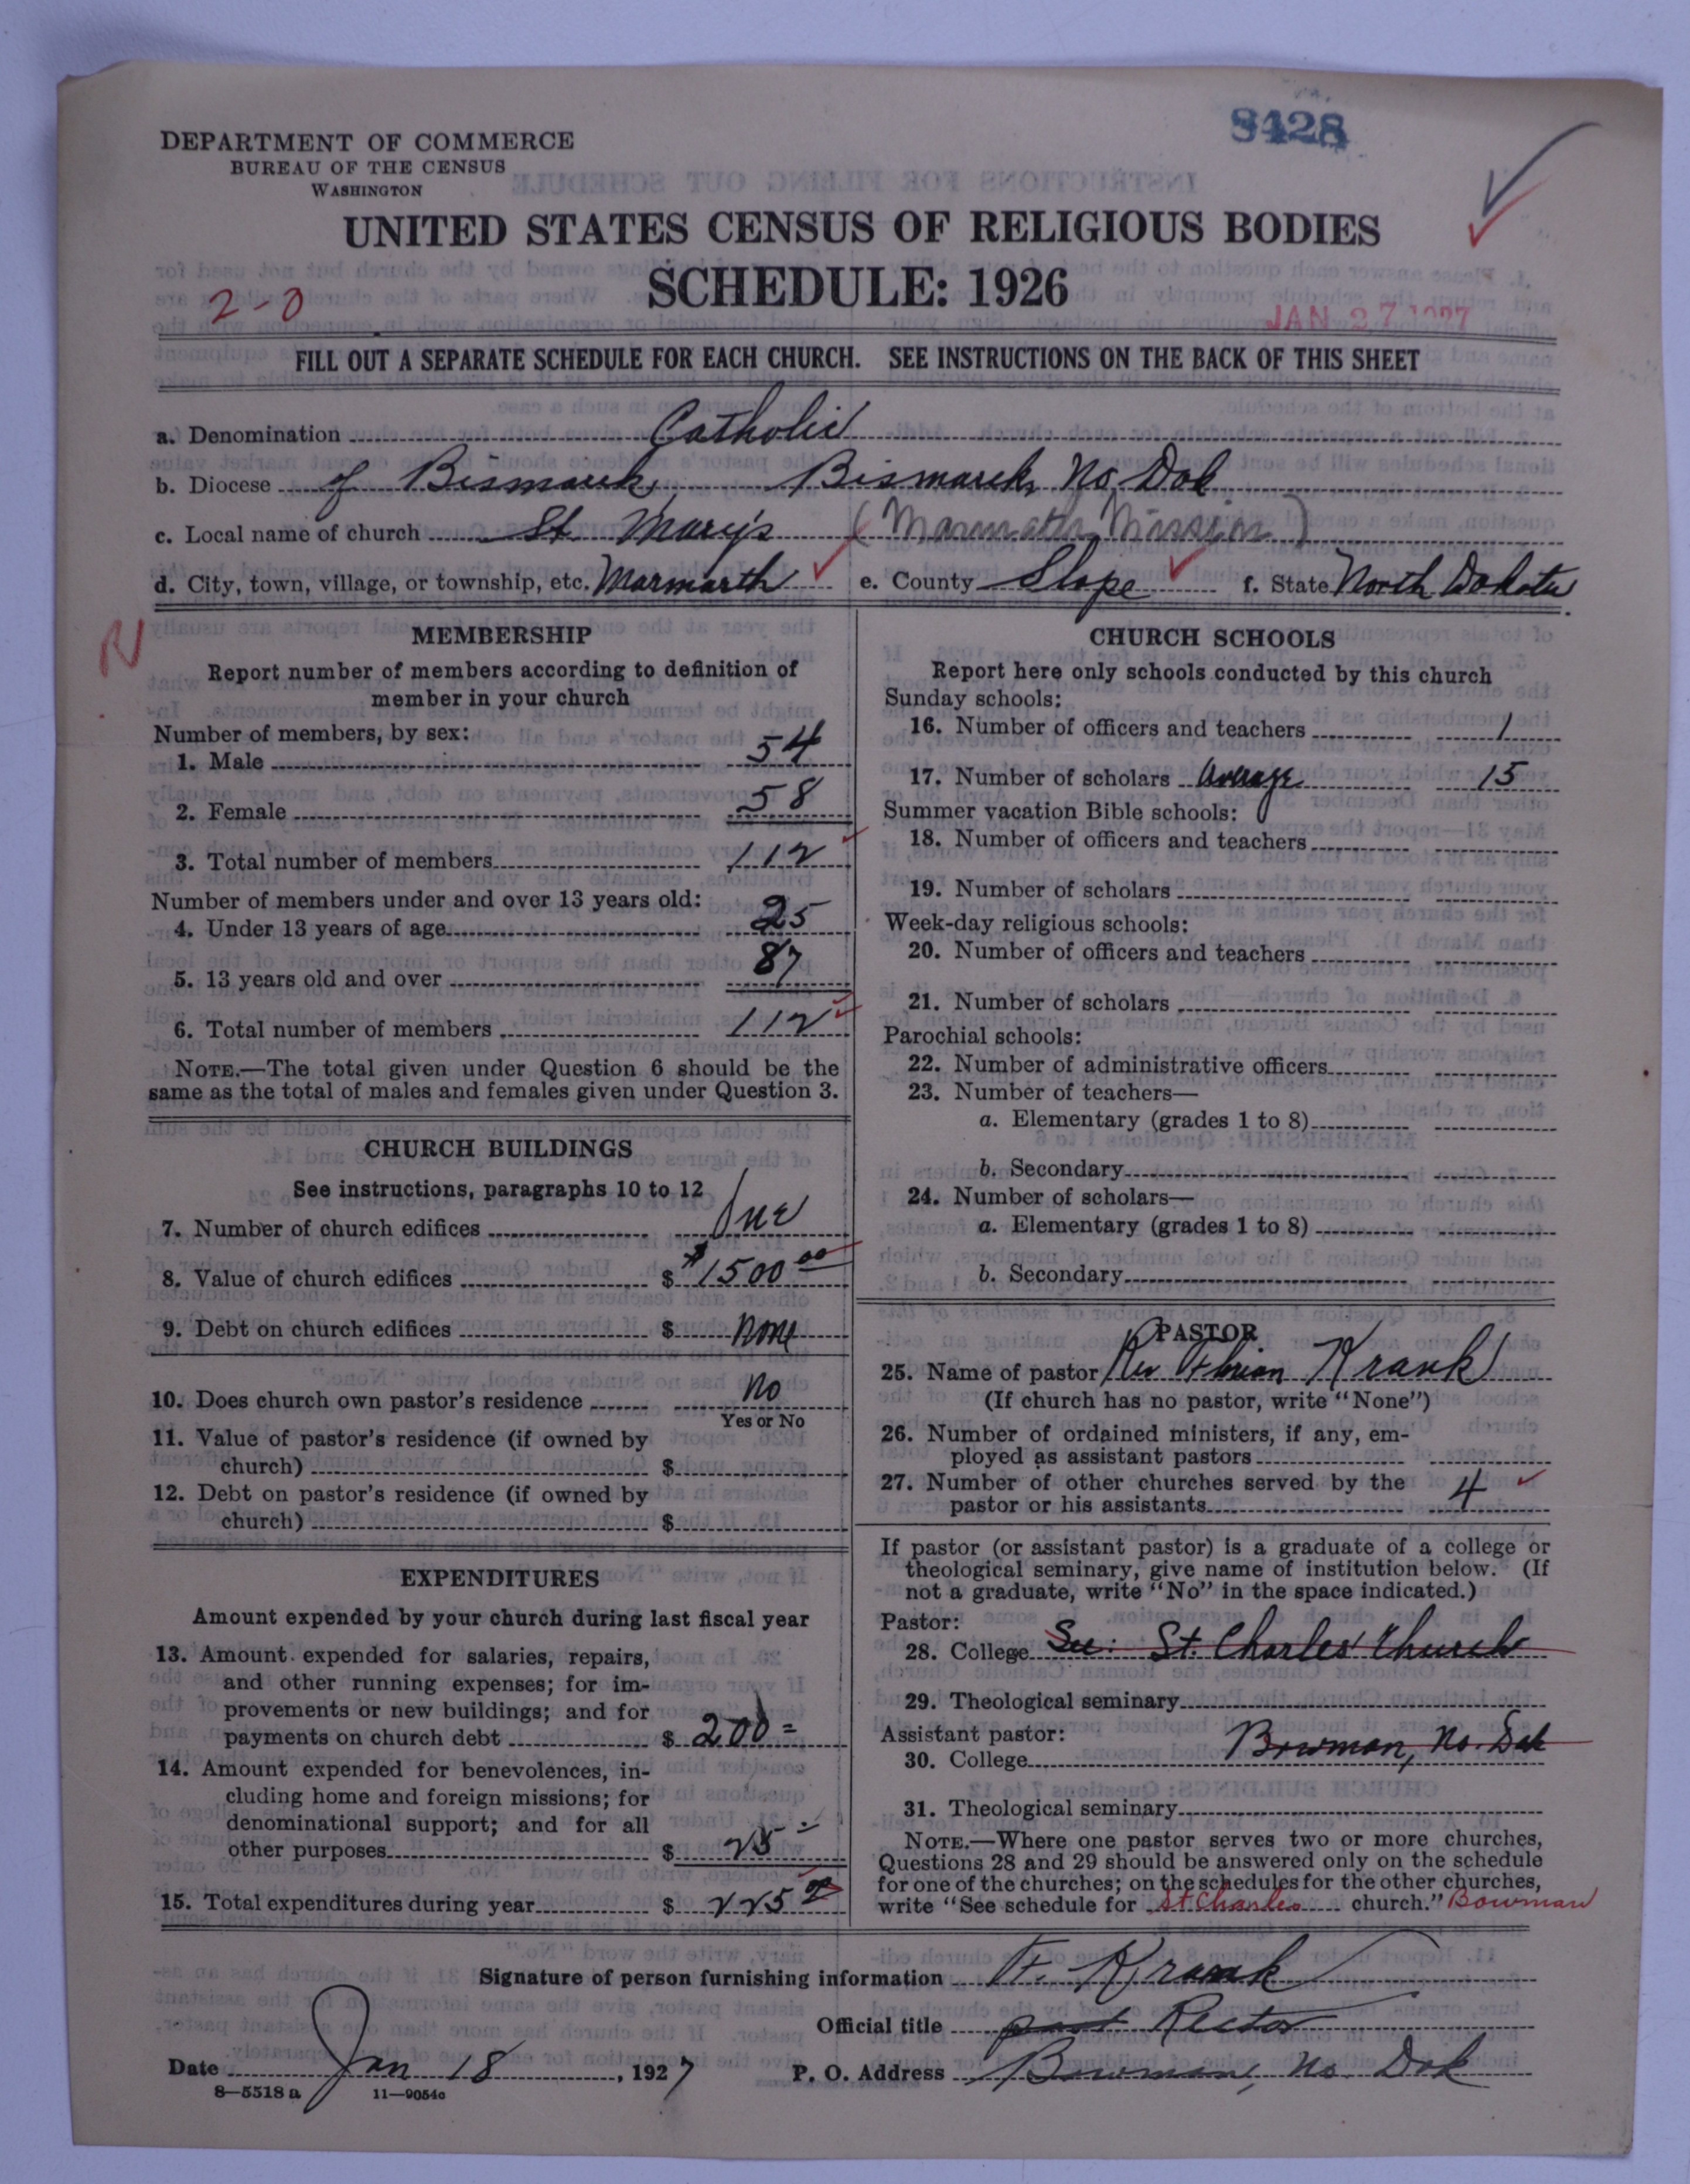 8428
DEPARTMENT OF COMMERCE
BUREAU OF THE CENSUS
WASHINGTON
UNITED STATES CENSUS OF RELIGIOUS BODIES
SCHEDULE: 1926
2-0
JAN 27 1927
FILL OUT A SEPARATE SCHEDULE FOR EACH CHURCH. SEE INSTRUCTIONS ON THE BACK OF THIS SHEET
a. Denomination Catholic
b. Diocese of Bismarck, Bismarck, No. Dak
c. Local name of church St. Mary's (Marmarth Mission)
d. City, town, village, or township, etc. Marmarth e. County Slope f. State North Dakota
MEMBERSHIP
Report number of members according to definition of
member in your church
Number of members, by sex:
1. Male 54
2. Female 58
3. Total number of members 112
Number of members under and over 13 years old:
4. Under 13 years of age 25
5. 13 years old and over 87
6. Total number of members 112
NOTE.—The total given under Question 6 should be the
same as the total of males and females given under Question 3.
CHURCH BUILDINGS
See instructions, paragraphs 10 to 12
7. Number of church edifices One
8. Value of church edifices $ $1500.00
9. Debt on church edifices $ None
10. Does church own pastor's residence No
Yes or No
11. Value of pastor's residence (if owned by
church) $
12. Debt on pastor's residence (if owned by
church) $
EXPENDITURES
Amount expended by your church during last fiscal year
13. Amount expended for salaries, repairs,
and other running expenses; for im-
provements or new buildings; and for
payments on church debt $ 200=
14. Amount expended for benevolences, in-
cluding home and foreign missions; for
denominational support; and for all
other purposes $ 25
15. Total expenditures during year $ 225
CHURCH SCHOOLS
Report here only schools conducted by this church
Sunday schools:
16. Number of officers and teachers 1
17. Number of scholars Average 15
Summer vacation Bible schools:
18. Number of officers and teachers
19. Number of scholars
Week-day religious schools:
20. Number of officers and teachers
21. Number of scholars
Parochial schools:
22. Number of administrative officers
23. Number of teachers—
a. Elementary (grades 1 to 8)
b. Secondary
24. Number of scholars—
a. Elementary (grades 1 to 8)
b. Secondary
PASTOR
25. Name of pastor Rev Florian Krank
(If church has no pastor, write "None")
26. Number of ordained ministers, if any, em-
ployed as assistant pastors
27. Number of other churches served by the
pastor or his assistants 4
If pastor (or assistant pastor) is a graduate of a college or
theological seminary, give name of institution below. (If
not a graduate, write "No" in the space indicated.)
Pastor:
28. College See: St. Charles Church
29. Theological seminary
Assistant pastor: Bowman, No. Dak
30. College
31. Theological seminary
NOTE.—Where one pastor serves two or more churches,
Questions 28 and 29 should be answered only on the schedule
for one of the churches; on the schedules for the other churches,
write "See schedule for St Charles church." Bowman
Signature of person furnishing information F. Krank
Official title past Rector
Date Jan 18, 1927 P. O. Address Bowman, No. Dak
8—5518 a 11—9054c